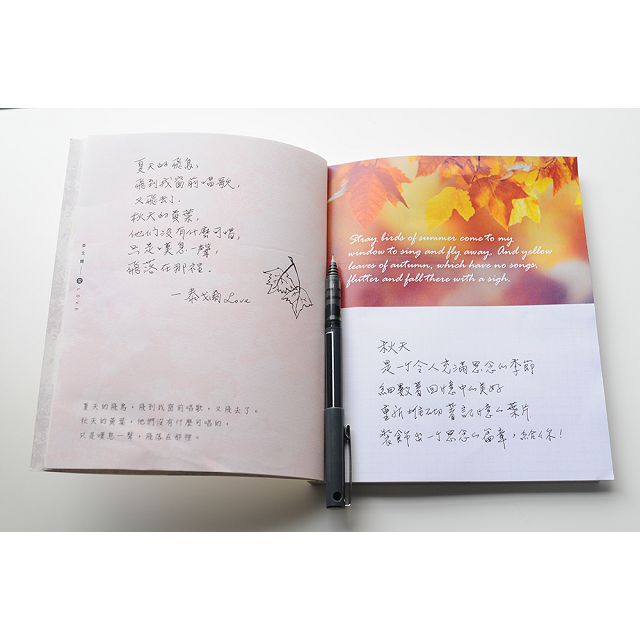 夏天的飛鳥，
飛到我窗前唱歌，
又飛去了.
秋天的黃葉，
他们沒有什麼可唱，
只是嘆息一聲，
飛落在那裡.
—泰戈爾Love
泰戈爾 愛 Love
夏天的飛鳥，飛到我窗前唱歌，又飛去了。
秋天的黃葉，他們沒有什麼可唱的，
只是嘆息一聲，飛落在那裡。
Stray birds of summer come to my
window to sing and fly away. And yellow
leaves of autumn, which have no songs,
flutter and fall there with a sigh.
秋天
是一个令人充滿思念的季節
細數著回憶中的美好
重新堆砌著記憶的葉片
裝飾出一个思念的篇章，給你！